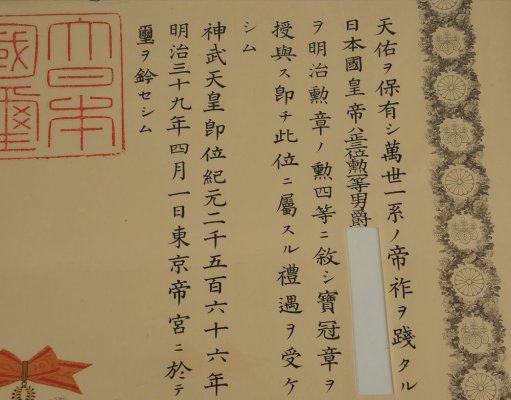 天佑ヲ保有シ萬世一系ノ帝祚ヲ踐タル
日本國皇帝ハ正三位勲一等男爵
ヲ明治勲章ノ勲四等ニ敘シ寶冠章ヲ
授與ス即チ此位ニ屬スル禮遇ヲ受ケ
シム
神武天皇即位紀元二千五百六十六年
明治三十九年四月一日東京帝宮ニ於テ
璽ヲ鈐セシム
大日本
國璽